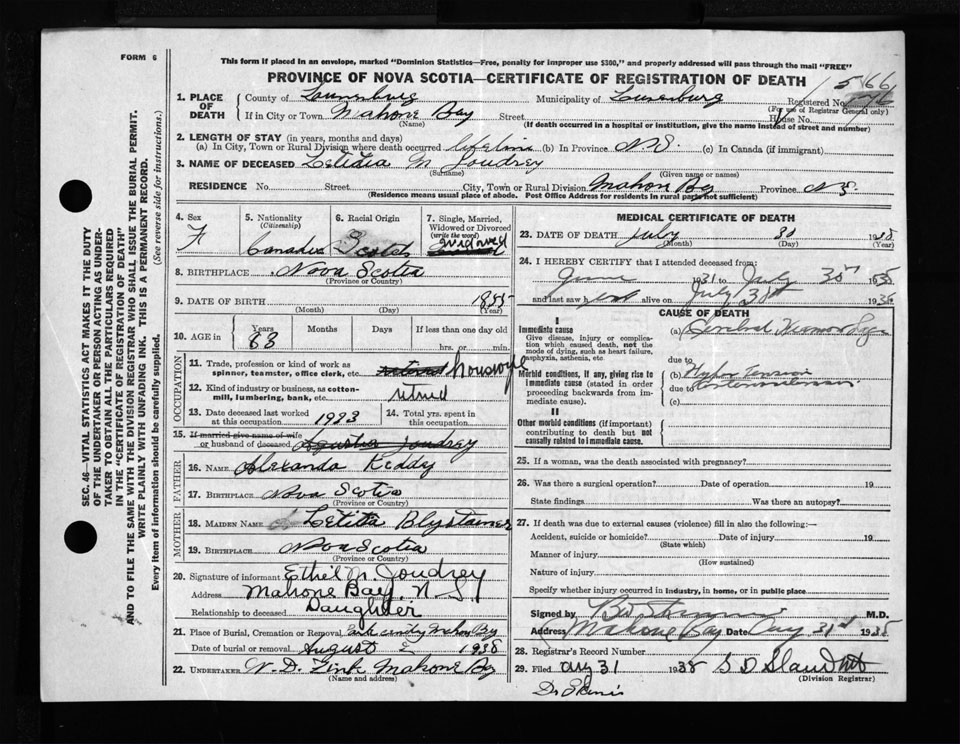 FORM 6
This form if placed in an envelope, marked "Dominion Statistics—Free, penalty for improper use $300," and properly addressed will pass through the mail "FREE"
PROVINCE OF NOVA SCOTIA—CERTIFICATE OF REGISTRATION OF DEATH
1. PLACE OF DEATH
County of Lunenburg Municipality of Lunenburg Registered No.
(For use of Registrar General only)
If in City or Town Mahone Bay Street House No.
(Name) (If death occurred in a hospital or institution, give the name instead of street and number)
2. LENGTH OF STAY (in years, months and days)
(a) In City, Town or Rural Division where death occurred lifetime (b) In Province N.S. (c) In Canada (if immigrant)
3. NAME OF DECEASED Letidia M Joudrey
(Surname) (Given name or names)
RESIDENCE No. Street City, Town or Rural Division Mahon Bay Province N.S.
(Residence means usual place of abode. Post Office Address for residents in rural parts not sufficient)
4. Sex F
5. Nationality (Citizenship) Canadia
6. Racial Origin Scotch
7. Single, Married, Widowed or Divorced (write the word) widowed
8. BIRTHPLACE Nova Scotia
(Province or Country)
9. DATE OF BIRTH 1855
(Month) (Day)
10. AGE in Years 83 Months Days If less than one day old
hrs. or min.
OCCUPATION
11. Trade, profession or kind of work as spinner, teamster, office clerk, etc. housewife
12. Kind of industry or business, as cotton-mill, lumbering, bank, etc. retired
13. Date deceased last worked at this occupation 1923
14. Total yrs. spent in this occupation
15. If married give name of wife or husband of deceased Joudrey
FATHER
16. NAME Alexanda Keddy
17. BIRTHPLACE Nova Scotia
(Province or Country)
MOTHER
18. MAIDEN NAME Letitta Blystainer
19. BIRTHPLACE Nova Scotia
(Province or Country)
20. Signature of informant Ethel M. Joudrey
Address Mahone Bay. N.S.
Relationship to deceased Daughter
21. Place of Burial, Cremation or Removal Mahon Bay
Date of burial or removal August 1938
22. UNDERTAKER W. D. Zink Mahone Bay
(Name and address)
MEDICAL CERTIFICATE OF DEATH
23. DATE OF DEATH July 30 1938
(Month) (Day) (Year)
24. I HEREBY CERTIFY that I attended deceased from:
June 1931 to July 30
and last saw alive on July
CAUSE OF DEATH
I
Immediate cause
Give disease, injury or complication which caused death, not the mode of dying, such as heart failure, asphyxia, asthenia, etc
(a) Cerebral Hemorrhage
due to
Morbid conditions, if any, giving rise to immediate cause (stated in order proceeding backwards from immediate cause).
(b) Hypertension
due to
(c)
II
Other morbid conditions (if important) contributing to death but not causally related to immediate cause.
25. If a woman, was the death associated with pregnancy?
26. Was there a surgical operation? Date of operation 19
State findings Was there an autopsy?
27. If death was due to external causes (violence) fill in also the following:—
Accident, suicide or homicide? Date of injury 19
(State which)
Manner of injury
(How sustained)
Nature of injury
Specify whether injury occurred in industry, in home, or in public place
Signed by M.D.
Address Mahone Bay Date Aug 31st 1938
28. Registrar's Record Number
29. Filed Aug 31 1938
(Division Registrar)
SEC. 46—VITAL STATISTICS ACT MAKES IT THE DUTY
OF THE UNDERTAKER OR PERSON ACTING AS UNDER-
TAKER TO OBTAIN ALL THE PARTICULARS REQUIRED
IN THE "CERTIFICATE OF REGISTRATION OF DEATH"
AND TO FILE THE SAME WITH THE DIVISION REGISTRAR WHO SHALL ISSUE THE BURIAL PERMIT.
WRITE PLAINLY WITH UNFADING INK. THIS IS A PERMANENT RECORD.
Every item of information should be carefully supplied. (See reverse side for instructions.)